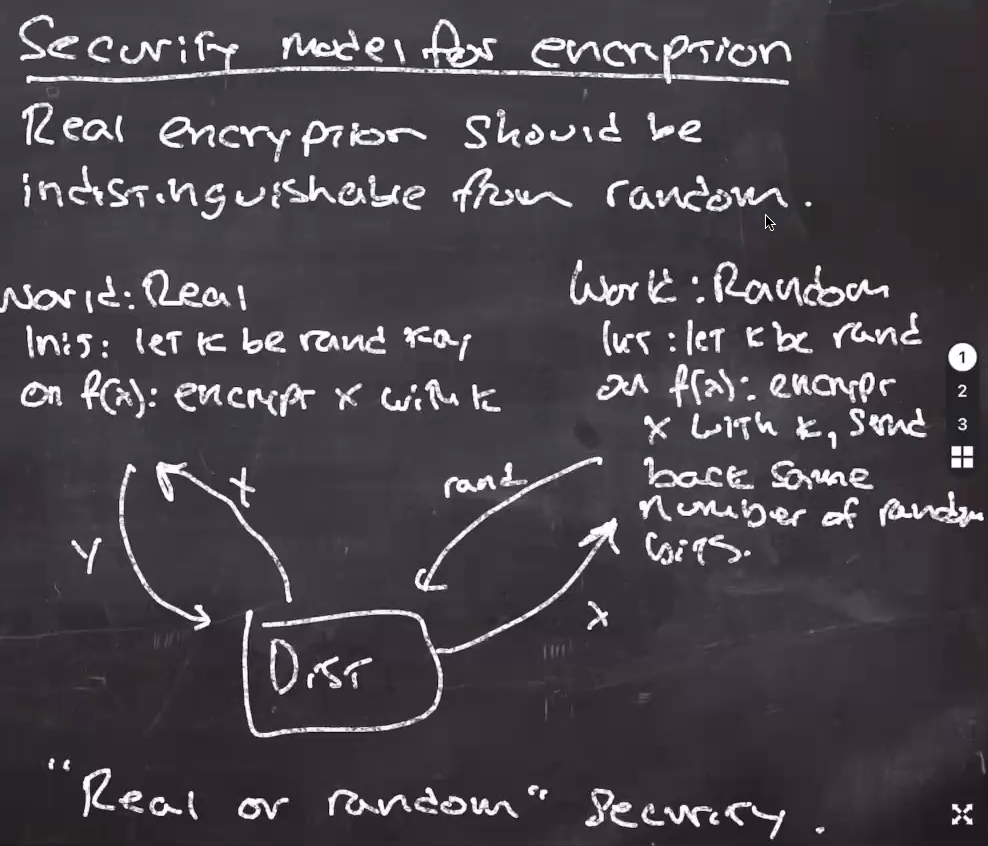 Security model for encryption
Real encryption should be
indistinguishable from random.
World: Real
Init: let k be rand key
on f(x): encrypt x with k
World: Random
Init: let k be rand
on f(x): encrypt
x with k, send
back same
number of random
bits.
1
2
3
x
y
rand
x
Dist
"Real or random" security.